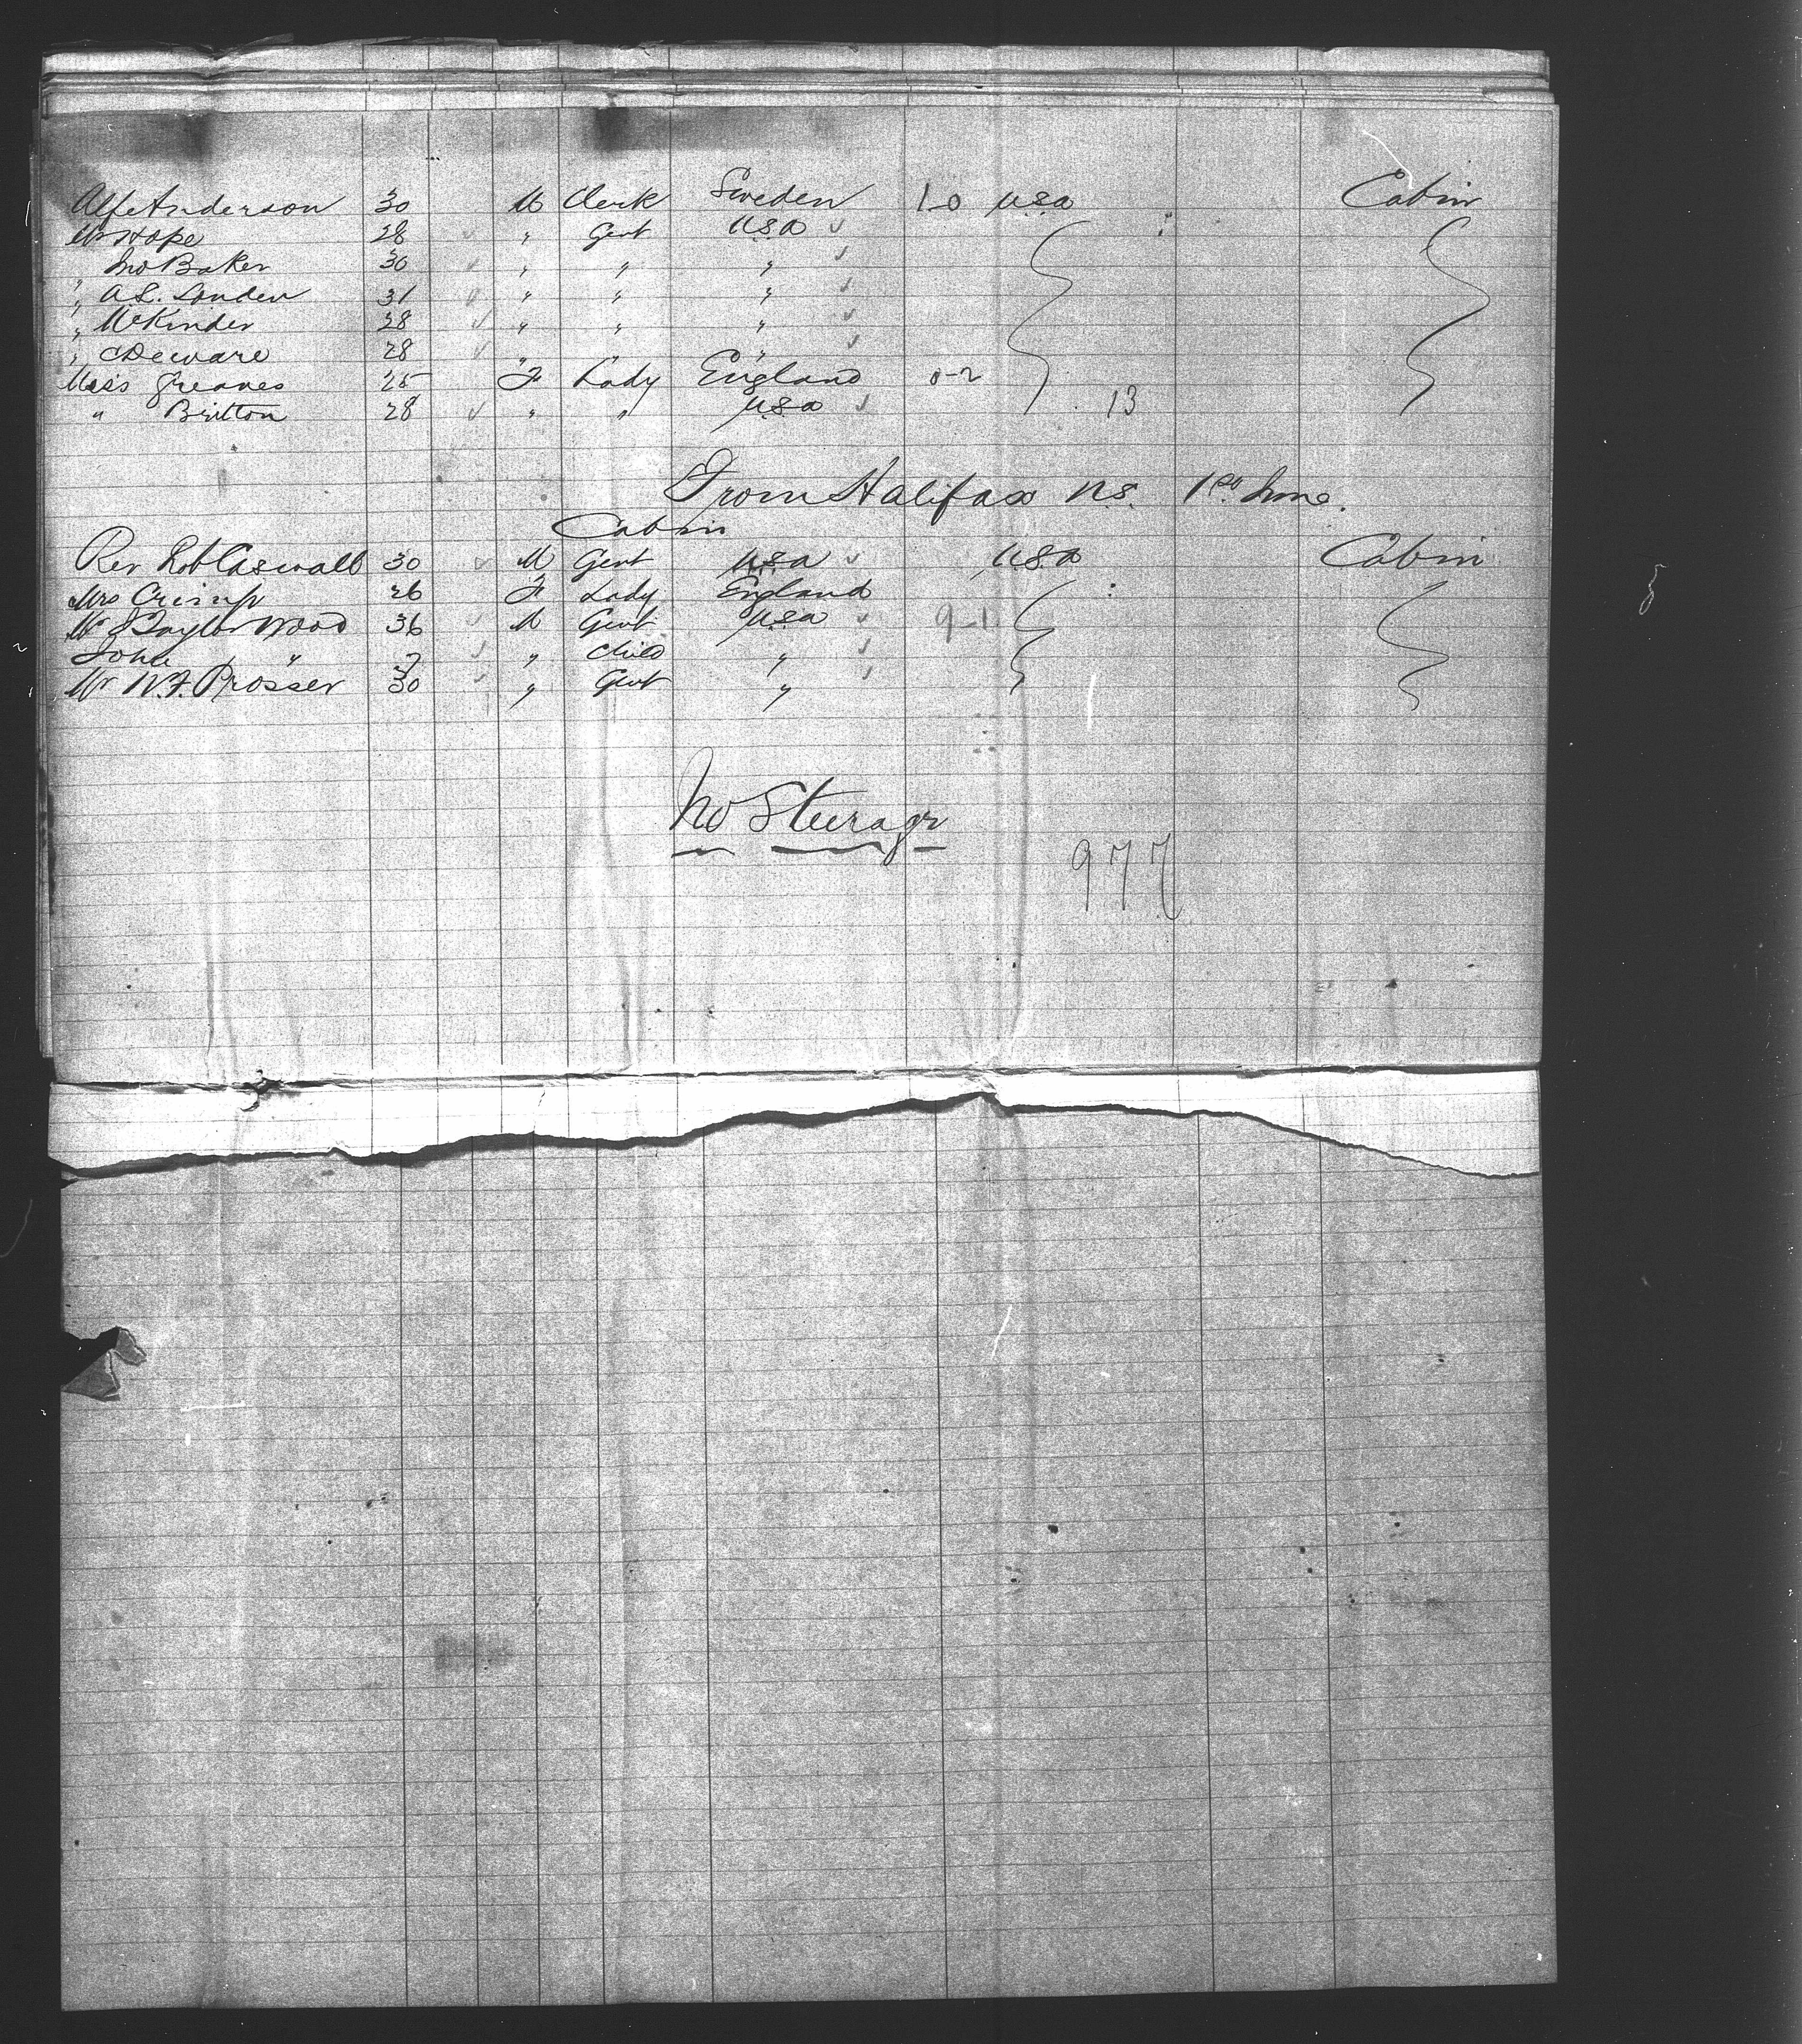 Alf Anderson 30 M Clerk Sweden 1-0 USA Cabin
Mr Hope 28 " Gent USA
" Jno Baker 30 " " "
" A.L. Louden 31 " " "
" McKinder 28 " " "
" C Deware 28 " " "
Miss Greaves 25 F Lady England 0-2
" Britton 28 " " USA 13
From Halifax N.S. 1st June.
Cabin
Rev Robt Caswall 30 M Gent USA USA Cabin
Mrs Crimp 26 F Lady England
Mr J Taylor Wood 36 M Gent USA 9-1
John " 7 " Child "
Mr W.F. Prosser 30 " Gent "
No Steerage
977